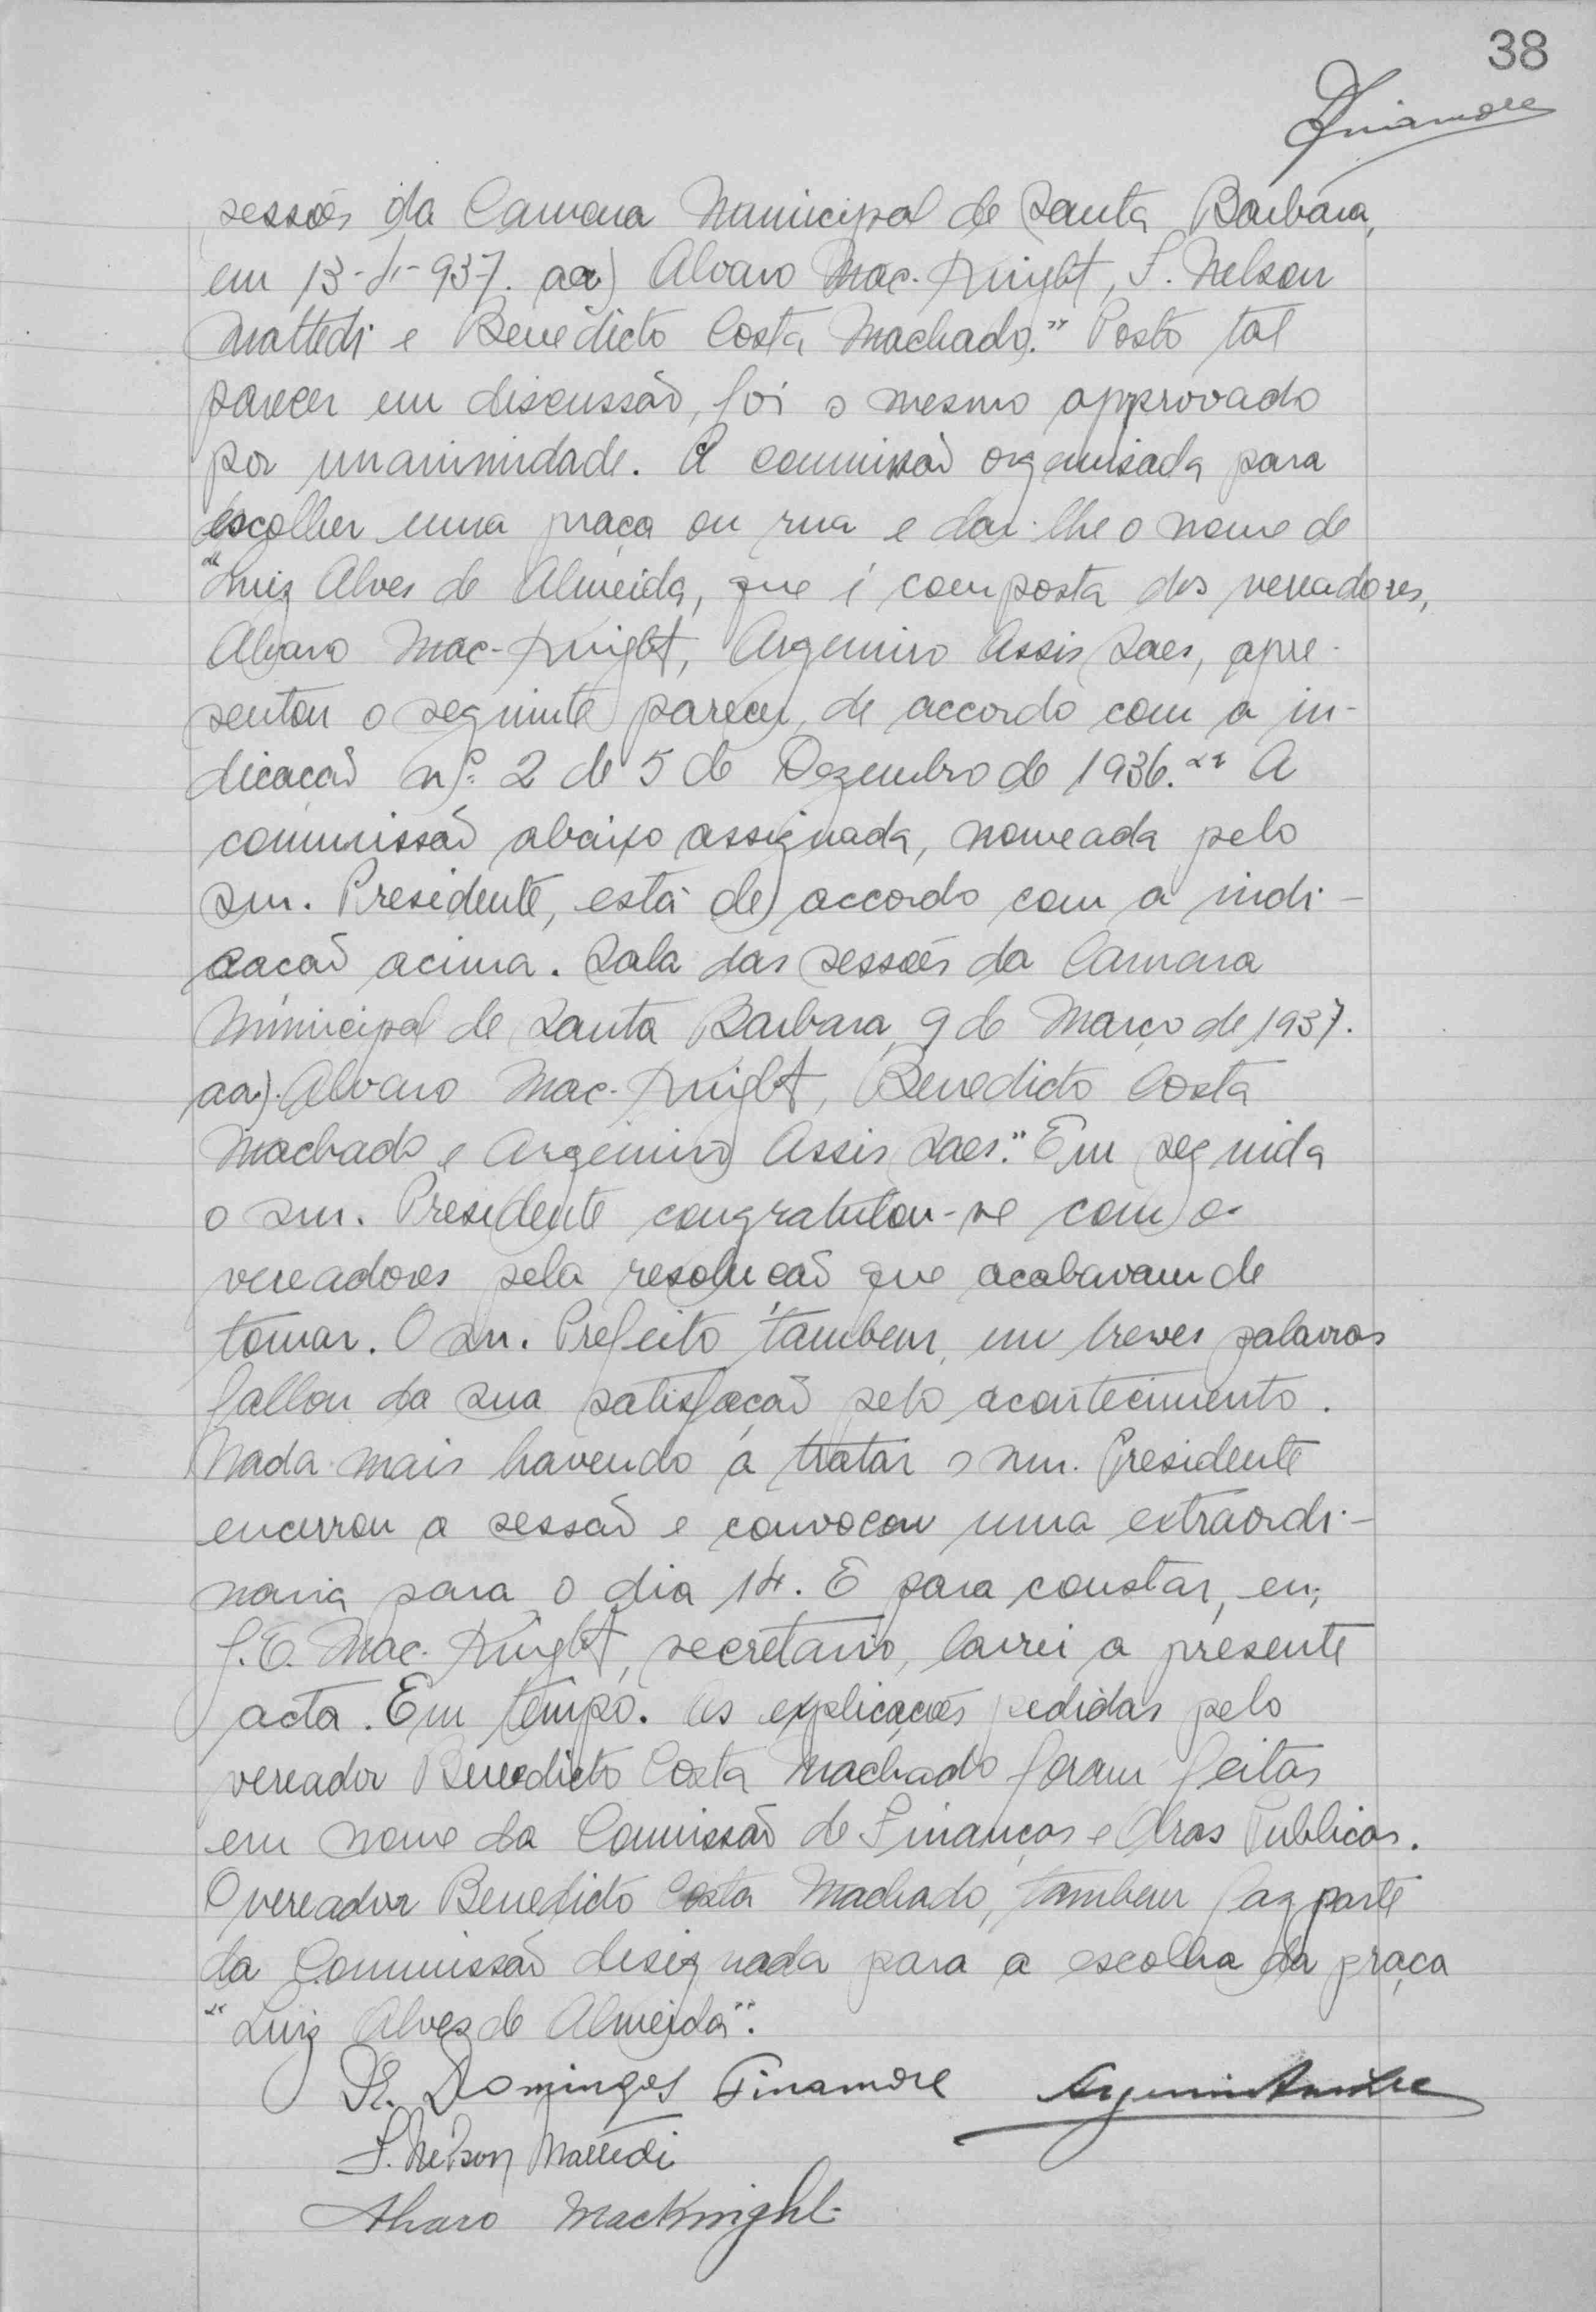 38
Finamore
sessões da Camara Municipal de Santa Barbara,
em 13-4-937. aa) Alvaro Mac-Knight, S. Nelson
Mattedi e Benedicto Costa Machado." Posto tal
parecer em discussão, foi o mesmo approvado
por unanimidade. A commissão organisada para
escolher uma praça ou rua e dar-lhe o nome de
"Luiz Alves de Almeida, que é composta dos vereadores,
Alvaro Mac-Knight, Argemiro Assis Saes, apre-
sentou o seguinte parecer, de accordo com a in-
dicação nº 2 de 5 de Dezembro de 1936. "A
commissão abaixo assignada, nomeada pelo
snr. Presidente, está de accordo com a indi-
cação acima. Sala das sessões da Camara
Municipal de Santa Barbara, 9 de Março de 1937.
aa). Alvaro Mac-Knight, Benedicto Costa
Machado e Argemiro Assis Saes." Em seguida
o snr. Presidente congratulou-se com os
vereadores pela resolução que acabavam de
tomar. O snr. Prefeito tambem, em breves palavras
fallou da sua satisfação pelo acontecimento.
Nada mais havendo á tratar o snr. Presidente
encerrou a sessão e convocou uma extraordi-
naria para o dia 14. E para constar, eu,
J. E. Mac-Knight, secretario, lavrei a presente
acta. Em tempo. As explicações pedidas pelo
vereador Benedicto Costa Machado foram feitas
em nome da Comissão de Finanças e Obras Publicas.
O vereador Benedicto Costa Machado, tambem faz parte
da Commissão designada para a escolha da praça
"Luiz Alves de Almeida".
Dr. Domingos Finamore
S. Nelson Mattedi
Alvaro MacKnight